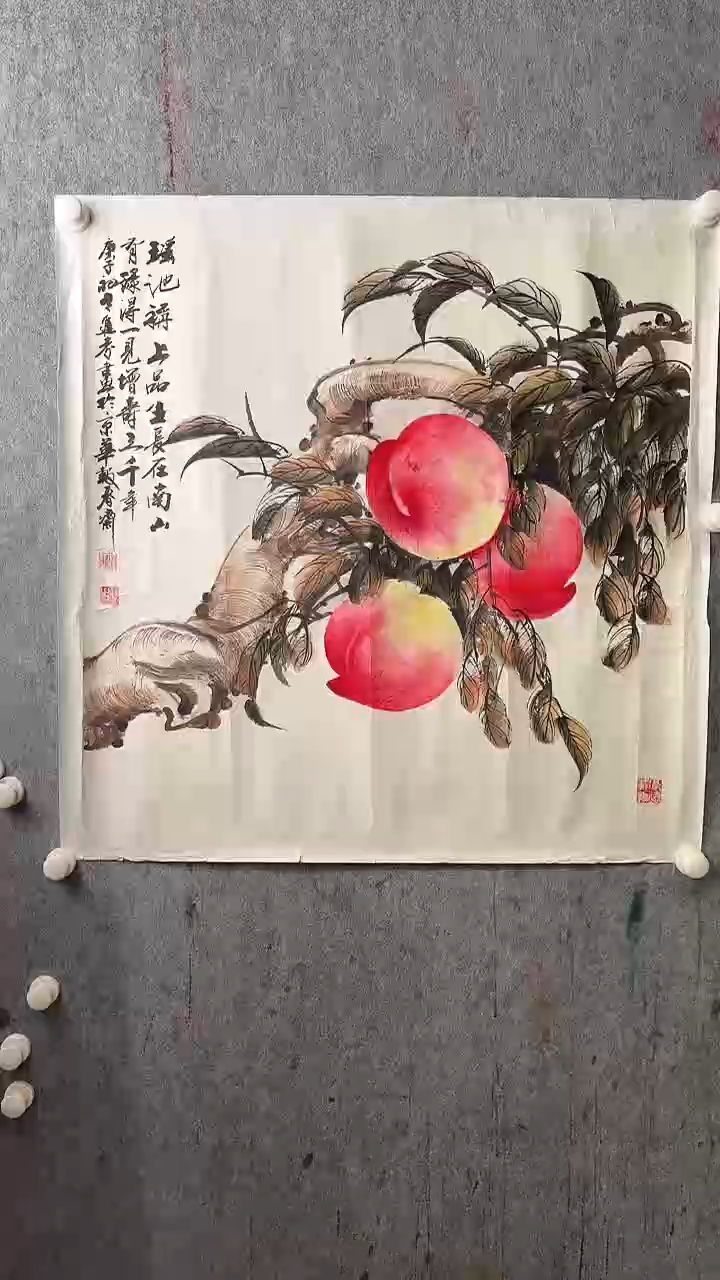 瑶池稱上品生長在南山
有緣得一見增壽三千年
庚子初冬畫於京華